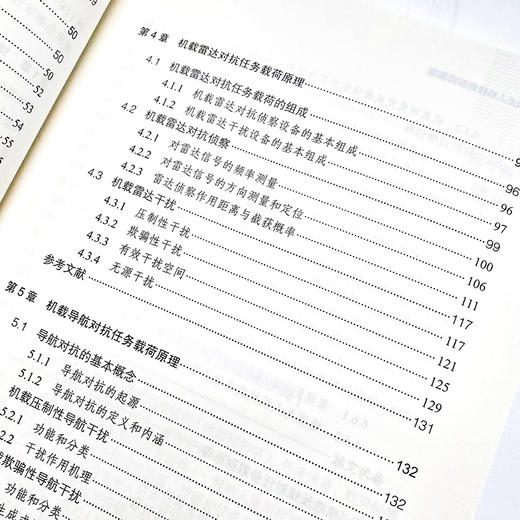 50
50
52
53
54
55
第4章 机载雷达对抗任务载荷原理
4.1 机载雷达对抗任务载荷的组成 96
4.1.1 机载雷达对抗侦察设备的基本组成 96
4.1.2 机载雷达干扰设备的基本组成 97
4.2 机载雷达对抗侦察 99
4.2.1 对雷达信号的频率测量 100
4.2.2 对雷达信号的方向测量和定位 106
4.2.3 雷达侦察作用距离与截获概率 111
4.3 机载雷达干扰 117
4.3.1 压制性干扰 117
4.3.2 欺骗性干扰 121
4.3.3 有效干扰空间 125
4.3.4 无源干扰 129
参考文献 131
第5章 机载导航对抗任务载荷原理 132
5.1 导航对抗的基本概念 132
5.1.1 导航对抗的起源
5.1.2 导航对抗的定义和内涵
机载压制性导航干扰
5.2.1 功能和分类
2.2 干扰作用机理
欺骗性导航干扰
功能和分类